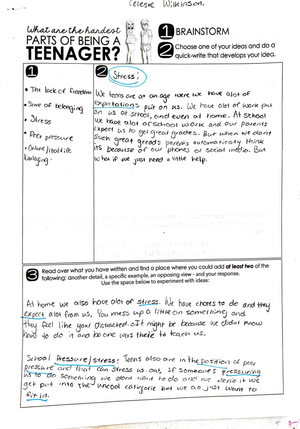 Celeste Wilkinson.
What are the hardest
PARTS OF BEING A
TEENAGER?
1 BRAINSTORM
2 Choose one of your ideas and do a
quick-write that develops your idea.
1
• The lack of freedom
• Sense of belonging
• Stress
• Peer pressure
• Online/real life
bullying.
2 Stress:
We teens are at an age were we have alot of
expectations put on us. We have alot of work put
on us at school, and even at home. At school
we have alot of school work and our parents
expect us to get great grades. But when we dont
such great grades parents automaticaly think
its because of our phones or social media. But
what if we just need a little help.
3 Read over what you have written and find a place where you could add at least two of the
following: another detail, a specific example, an opposing view - and your response.
Use the space below to experiment with ideas:
At home we also have alot of stress. We have chores to do and they
expect alot from us. You mess up a little on something and
they feel like your distracted. It might be because we didnt know
how to do it and no one was there to teach us.
School Pressure/stress: Teens also are in the position of peer
pressure and that can stress us out. If someones pressuring
us to do something we dont want to do and we denie it we
get put into the uncool categorie but we all just want to
fit in.